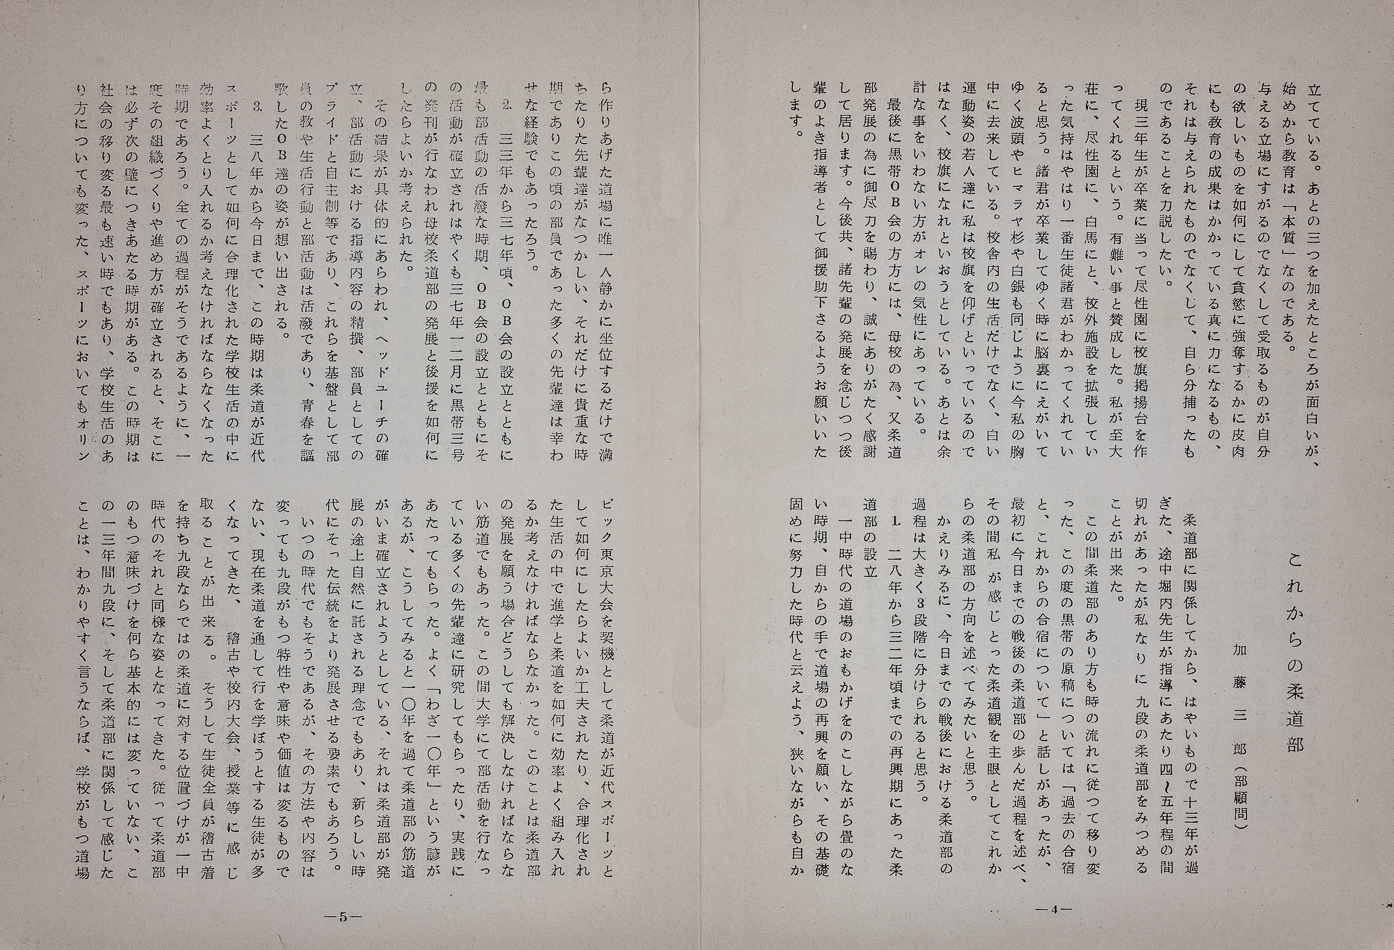 立てている。あとの三つを加えたところが面白いが、
始めから教育は「本質」なのである。
与える立場にすがるのでなくして受取るものが自分
の欲しいものを如何にして貪慾に強奪するかに皮肉
にも教育の成果はかかっている真に力になるもの、
それは与えられたものでなくじて、自ら分捕ったも
のであることを力説したい。
現三年生が卒業に当って尽性園に校旗掲揚台を作
ってくれるという。有難い事と賛成した。私が至大
荘に、尽性園に、白馬にと、校外施設を拡張してい
った気持はやはり一番生徒諸君がわかってくれてい
ると思う。諸君が卒業してゆく時に脳裏にえがいて
ゆく波頭やヒマラヤ杉や白銀も同じように今私の胸
中に去来している。校舎内の生活だけでなく、白い
運動姿の若人達に私は校旗を仰げといっているので
はなく、校旗になれといおうとしている。あとは余
計な事をいわない方がオレの気性にあっている。
最後に黒帯OB会の方方には、母校の為、又柔道
部発展の為に御尽力を賜わり、誠にありがたく感謝
して居ります。今後共、諸先輩の発展を念じつつ後
輩のよき指導者として御援助下さるようお願いいた
します。
これからの柔道部
加藤三郎（部顧問）
柔道部に関係してから、はやいもので十三年が過
ぎた、途中堀内先生が指導にあたり四～五年程の間
切れがあったが私なりに九段の柔道部をみつめる
ことが出来た。
この間柔道部のあり方も時の流れに従つて移り変
った、この度の黒帯の原稿については「過去の合宿
と、これからの合宿について」と話しがあったが、
最初に今日までの戦後の柔道部の歩んだ過程を述べ、
その間私が感じとった柔道観を主眼としてこれか
らの柔道部の方向を述べてみたいと思う。
かえりみるに、今日までの戦後における柔道部の
過程は大きく3段階に分けられると思う。
1. 二八年から三二年頃までの再興期にあった柔
道部の設立
一中時代の道場のおもかげをのこしながら畳のな
い時期、自からの手で道場の再興を願い、その基礎
固めに努力した時代と云えよう、狭いながらも自か
—4—
ら作りあげた道場に唯一人静かに坐位するだけで満
ちたりた先輩達がなつかしい、それだけに貴重な時
期でありこの頃の部員であった多くの先輩達は幸わ
せな経験でもあったろう。
2. 三三年から三七年頃、OB会の設立とともに
最も部活動の活潑な時期、OB会の設立とともにそ
の活動が確立されはやくも三七年一二月に黒帯三号
の発刊が行なわれ母校柔道部の発展と後援を如何に
したらよいか考えられた。
その結果が具体的にあらわれ、ヘッドコーチの確
立、部活動における指導内容の精撰、部員としての
プライドと自主制等であり、これらを基盤として部
員の数や生活行動と部活動は活潑であり、青春を謳
歌したOB達の姿が想い出される。
3. 三八年から今日まで、この時期は柔道が近代
スポーツとして如何に合理化された学校生活の中に
効率よくとり入れるか考えなければならなくなった
時期であろう。全ての過程がそうであるように、一
度その組織づくりや進め方が確立されると、そこに
は必ず次の壁につきあたる時期がある。この時期は
社会の移り変る最も速い時でもあり、学校生活のあ
り方についても変った、スポーツにおいてもオリン
ピック東京大会を契機として柔道が近代スポーツと
して如何にしたらよいか工夫されたり、合理化され
た生活の中で進学と柔道を如何に効率よく組み入れ
るか考えなければならなかった。このことは柔道部
の発展を願う場合どうしても解決しなければならな
い筋道でもあった。この間大学にて部活動を行なっ
ている多くの先輩達に研究してもらったり、実践に
あたってもらった。よく「わざ一〇年」という諺が
あるが、こうしてみると一〇年を過て柔道部の筋道
がいま確立されようとしている、それは柔道部が発
展の途上自然に託される理念でもあり、新らしい時
代にそった伝統をより発展させる要素でもあろう。
いつの時代でもそうであるが、その方法や内容は
変っても九段がもつ特性や意味や価値は変るもので
ない、現在柔道を通して行を学ぼうとする生徒が多
くなってきた、稽古や校内大会、授業等に感じ
取ることが出来る。そうして生徒全員が稽古着
を持ち九段ならではの柔道に対する位置づけが一中
時代のそれと同様な姿となってきた。従って柔道部
のもつ意味づけを何ら基本的には変っていない、こ
の一三年間九段に、そして柔道部に関係して感じた
ことは、わかりやすく言うならば、学校がもつ道場
—5—